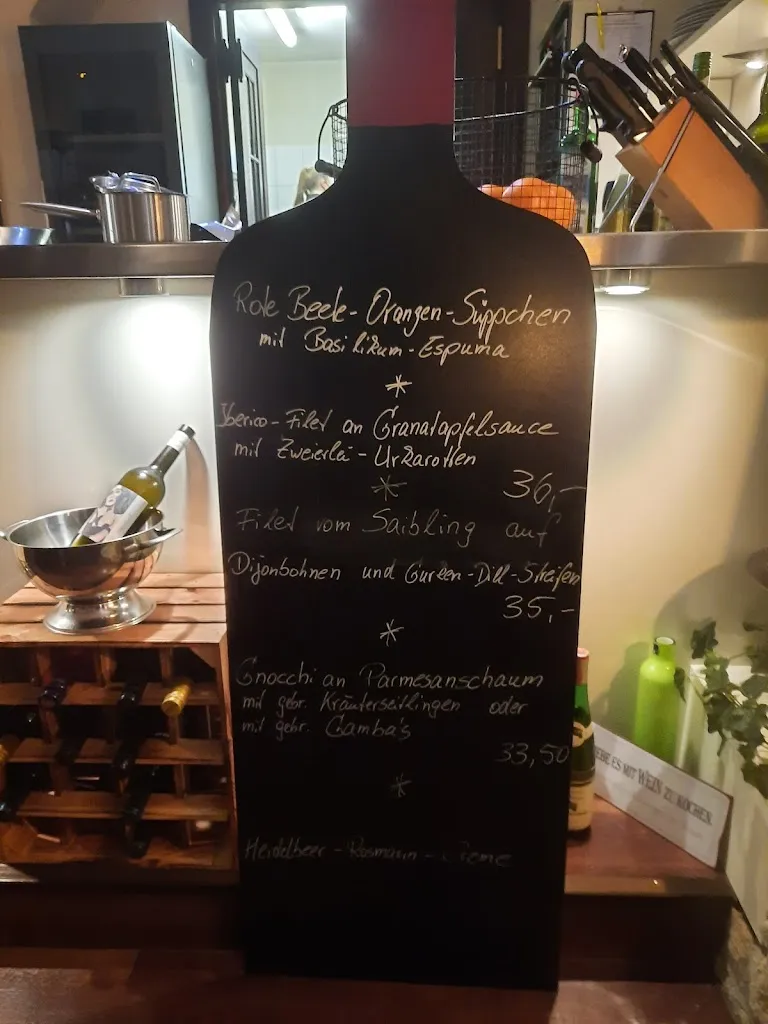 Rote Beete-Orangen-Süppchen
mit Basilikum-Espuma
Iberico-Filet an Granatapfelsauce
mit Zweierlei-Urkarotten
36,-
Filet vom Saibling auf
Dijonbohnen und Gurken-Dill-Streifen
35,-
Gnocchi an Parmesanschaum
mit gebr. Kräuterseitlingen oder
mit gebr. Gamba's
33,50
Heidelbeer-Rosmarin-Creme
IEBE ES MIT WEIN ZU KOCHEN.